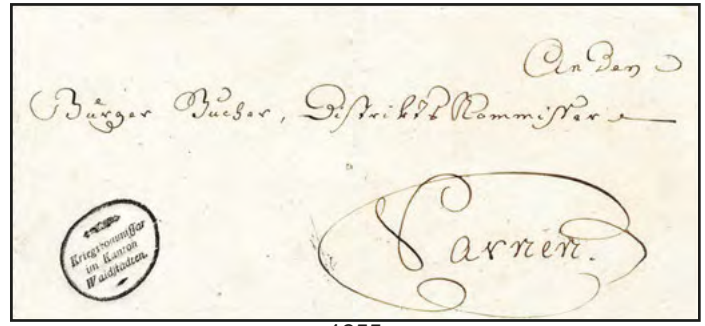 An den
Bürger Bucher, Distrikts Kommissar
Sarnen.
Kriegskommissar
im Kanton
Waldstädten.